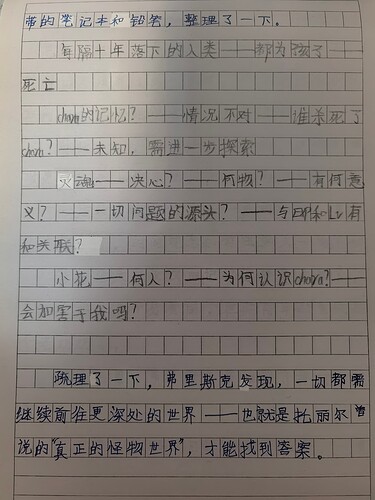 带的笔记本和铅笔，整理了一下。
每隔十年落下的人类——都为孩子——
死亡
chara的记忆？——情况不对——谁杀死了
chara？——未知，需进一步探索
灵魂——决心？——何物？——有何意
义？——一切问题的源头？——与EXP和LV有
何关联？
小花——何人？——为何认识chara？——
会加害于我吗？
疏理了一下，弗里斯克发现，一切都需
继续前往更深处的世界——也就是托丽尔曾
说的"真正的怪物世界"，才能找到答案。